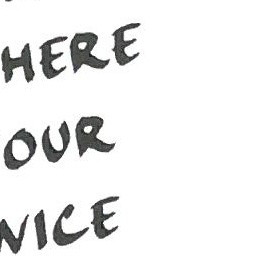 HERE
OUR
NICE